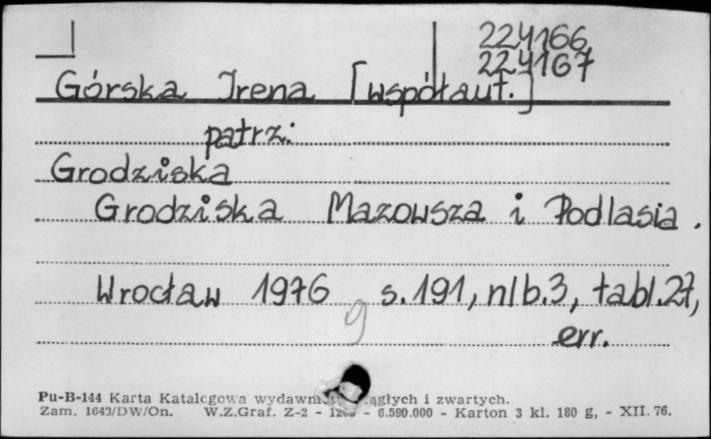 224166
224167
Górska Irena [współaut.]
patrz:
Grodziska
Grodziska Mazowsza i Podlasia.
Wrocław 1976 s.191, nlb.3, tabl.27,
g
err.
Pu-B-144 Karta Katalogowa wydawn ągłych i zwartych.
Zam. 1643/DW/On. W.Z.Graf. Z-2 - - 6.590.000 - Karton 3 kl. 180 g, - XII. 76.